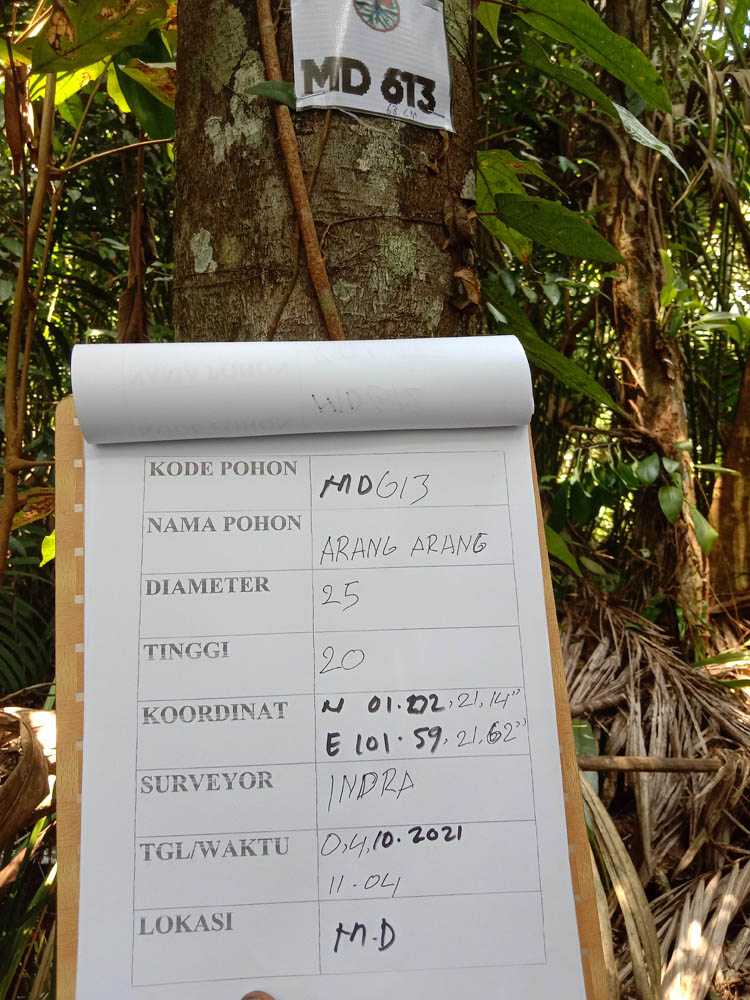 MD 613
68 CM
KODE POHON MD613
NAMA POHON ARANG ARANG
DIAMETER 25
TINGGI 20
KOORDINAT N 01.02,21,14"
E 101.59,21,62"
SURVEYOR INDRA
TGL/WAKTU 0,4,10.2021
11.04
LOKASI M.D